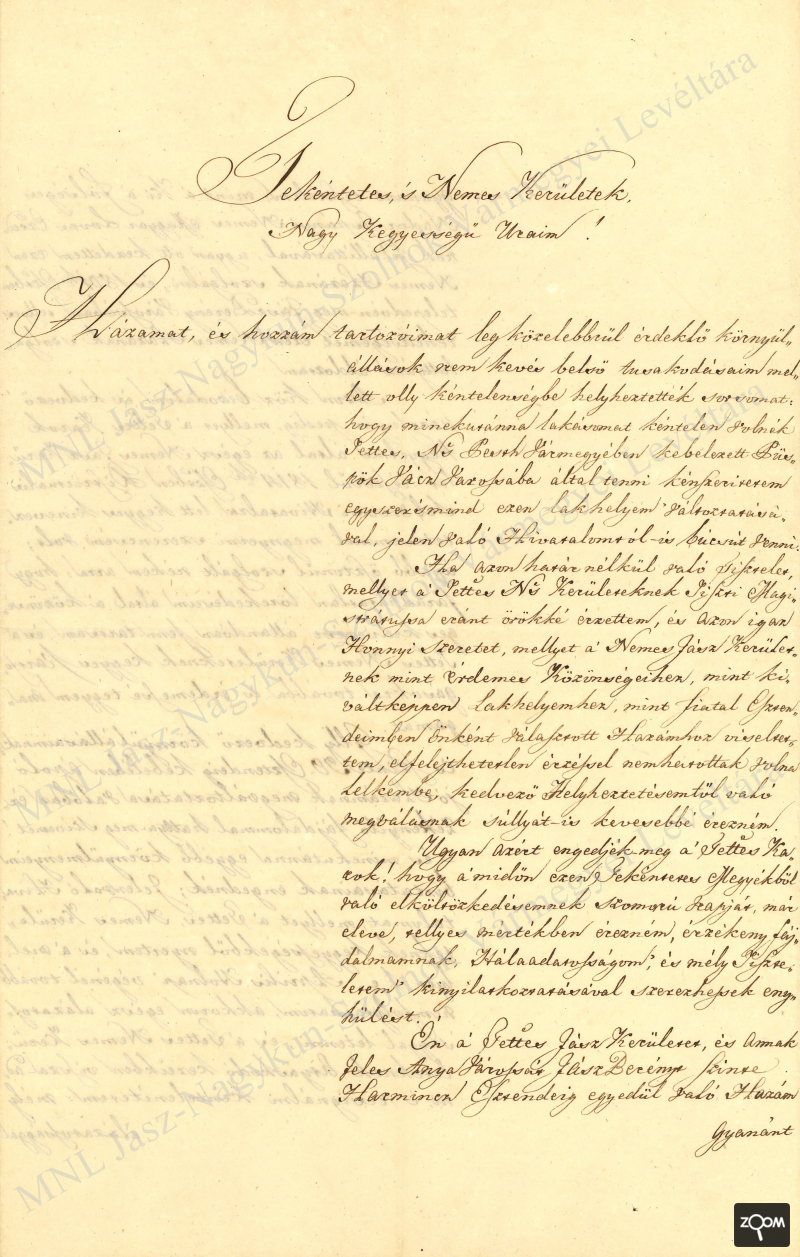 Tekéntetes, 's Nemes Kerületek,
Nagy Kegyességű Uraim !
Házamat, és hozzám tartozóimat leg közelebbrül érdeklő környül„
állások nem kevés belső tusakodásaim mel„
lett olly kéntelenségbe helyheztették sorsomat:
hogy minekutánna lakásomat kéntelen volnék
Tettes, Ns Pesth Vármegyében kebelezett Püs„
pök Vácz Várossába által tenni kénszeríttetem
egyszersmind ezen lakhelyem változtatásá„
val, jelen való Hivatalomtól-is búcsút venni.
Ha azon határ nélkül való Tisztelet,
mellyet a' Tettes Ns Kerületeknek Tiszti Magi„
strátussa eránt örökké érzettem, és azon igaz
Honnyi szeretet, mellyet a' Nemes Jász Kerület„
nek mint érdemes Közönségeihez, mint ki„
váltképpen lakhelyemhez, mint fiatal Eszten„
deimben önként választott Hazámhoz viseltet„
tem, elfelejthetetlen érzéssel nem hatottak volna
Lelkembe, kedvező Helyheztetésemtől való
megválásnak sullyát-is kevesebbé érezném.
Ugyan azért engedjék-meg a' Tettes Ka„
rok! hogy a'midőn ezen Tekéntetes Megyékből
való elköltözkedésemnek szomorú napját, már
eleve, tellyes mértékben érezném, érzékeny fáj„
dalmamnak, Háláadatosságom', és mély Tiszte„
letem' kinyilatkoztatásával szerezhessek eny„
hülést.
Én a' Tettes Jász Kerületet, és annak
Jeles Anya Várossát Jász Berényt szinte
Harmincz Esztendeig egyedül való Hazám
Gyanánt
MNL Jász-Nagykun-Szolnok Megyei Levéltára
MNL Jász-Nagykun-Szolnok Megyei Levéltára
MNL Jász-Nagykun-Szolnok Megyei Levéltára
ZOOM